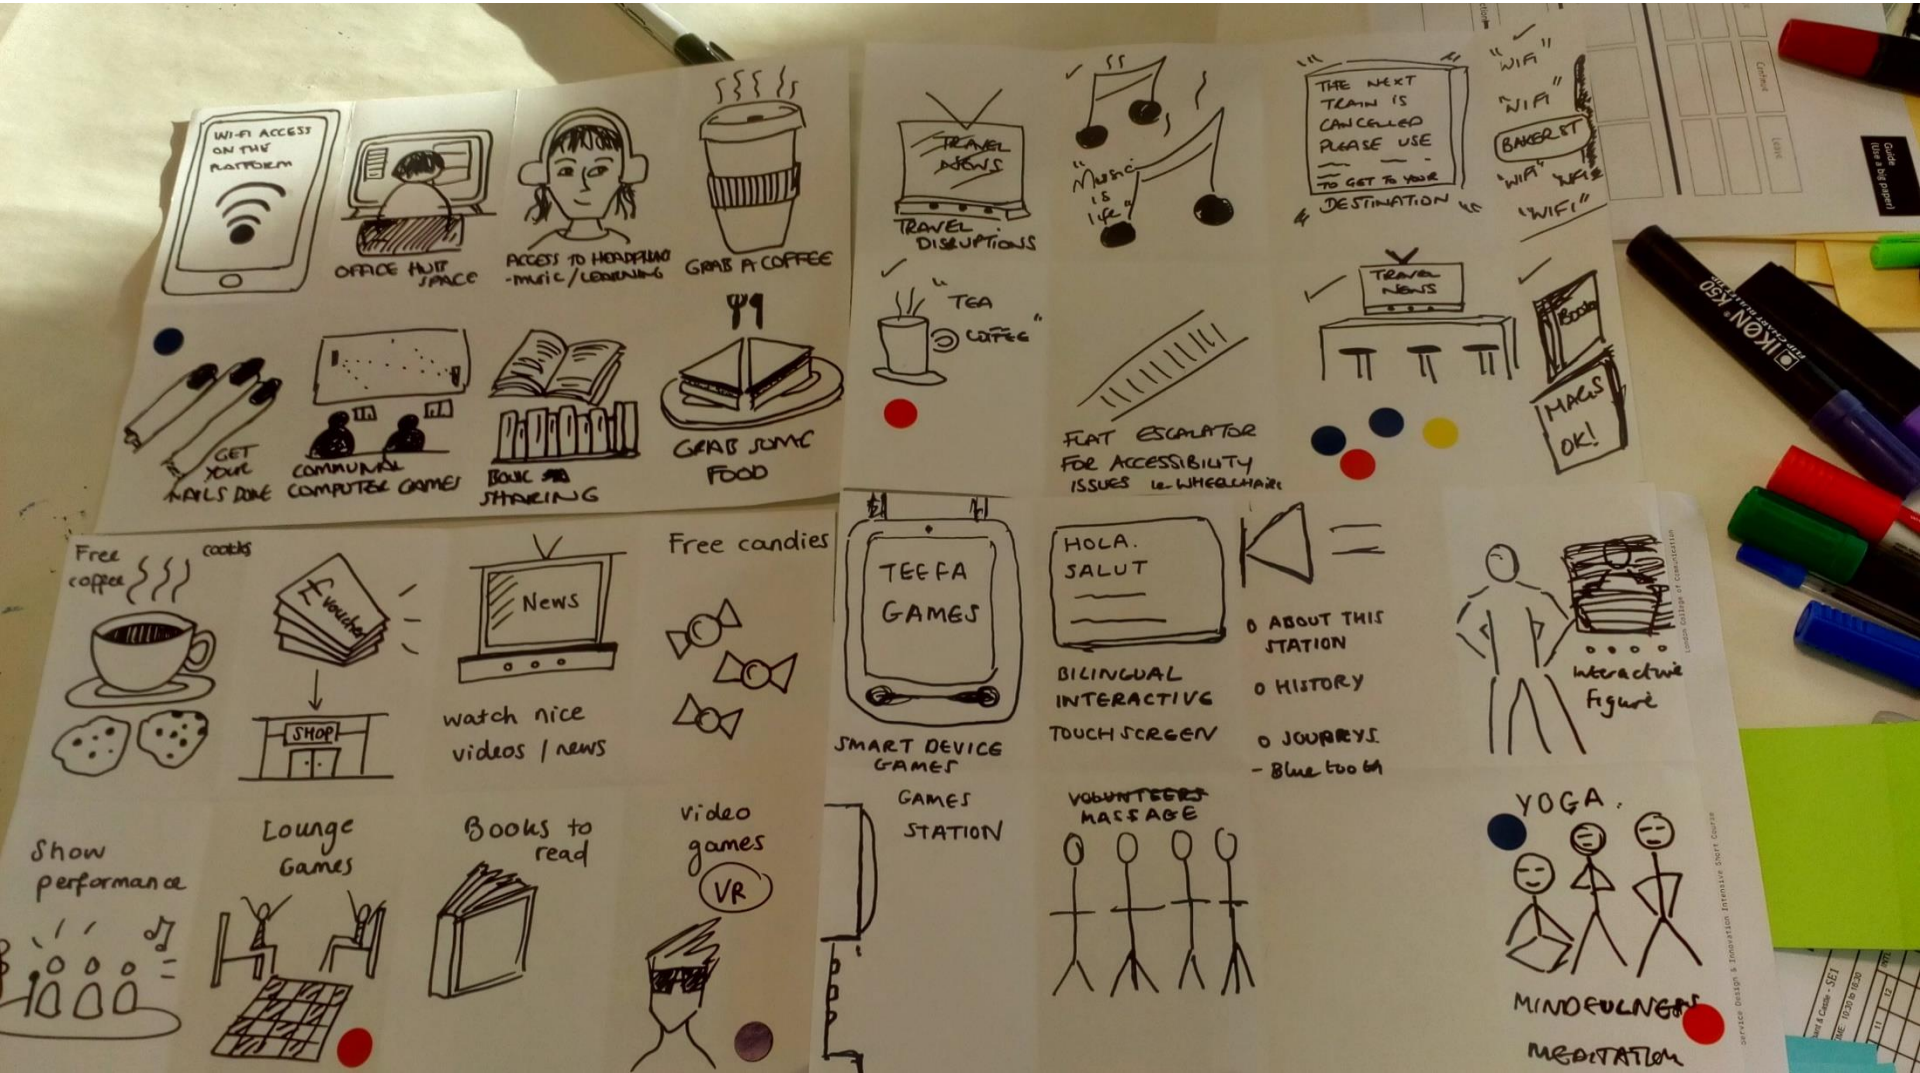 WI-FI ACCESS
ON THE
PLATFORM
OFFICE HUB
SPACE
ACCESS TO
-MUSIC/LEARNING
GRAB A COFFEE
GET
YOUR
NAILS DONE
COMMUNAL
COMPUTER GAMES
BOOK
SHARING
GRAB SOME
FOOD
TRAVEL
NEWS
TRAVEL
DISRUPTIONS
"Music
is
life"
THE NEXT
TRAIN IS
CANCELLED
PLEASE USE
TO GET TO YOUR
DESTINATION
"WIFI"
"WIFI"
BAKER ST
"WIFI" "WIFI"
"WIFI"
"TEA
COFFEE"
FLAT ESCALATOR
FOR ACCESSIBILITY
ISSUES ie WHEELCHAIRS
TRAVEL
NEWS
BOOKS
MAGS
OK!
Free
coffee
£ voucher
SHOP
News
watch nice
videos / news
Free candies
Show
performance
Lounge
Games
Books to
read
video
games
VR
TEEFA
GAMES
SMART DEVICE
GAMES
HOLA.
SALUT
BILINGUAL
INTERACTIVE
TOUCHSCREEN
O ABOUT THIS
STATION
O HISTORY
O JOURNYS.
- Bluetooth
Interactive
figure
GAMES
STATION
VOLUNTEERS
MASSAGE
YOGA.
MINDFULNESS
MEDITATION
London College of Communication
Service Design & Innovation Intensive Short Course
Guide
(Use a big paper)
Content
Leave
IKON
K50
FLIP CHART
BULLET TIP
& Castle - SE1
TIME: 10:30 to 16:30
12
11